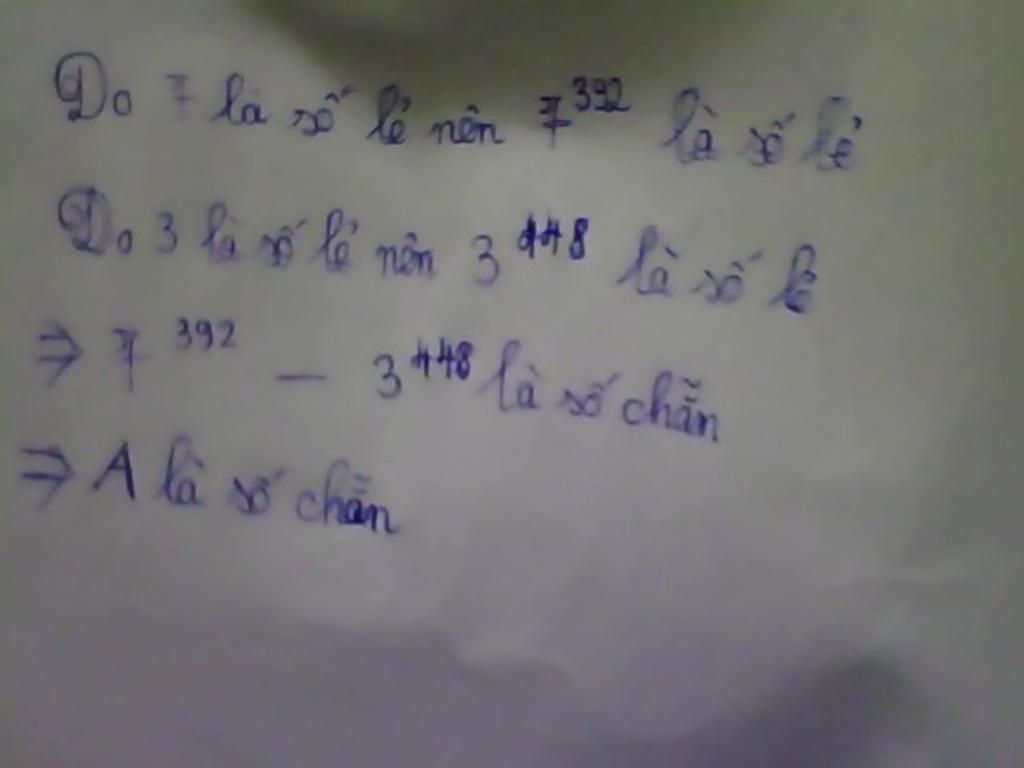 Do 7 là số lẻ nên 7^392 là số lẻ
Do 3 là số lẻ nên 3^448 là số lẻ
⇒ 7^392 − 3^448 là số chẵn
⇒ A là số chẵn